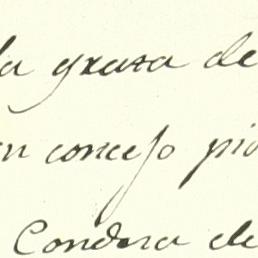 la grasa de
en concejo pio
Condesa de